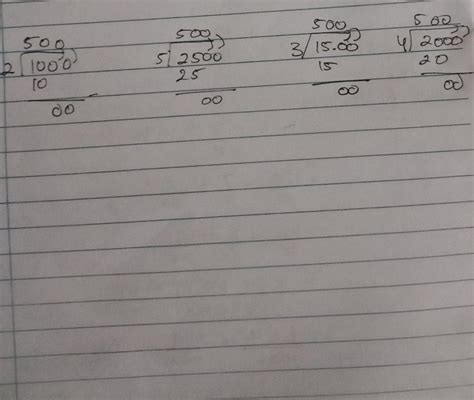 500 500 500 500
2 1000 5 2500 3 15.00 4 2000
10 25 15 20
00 00 00 00